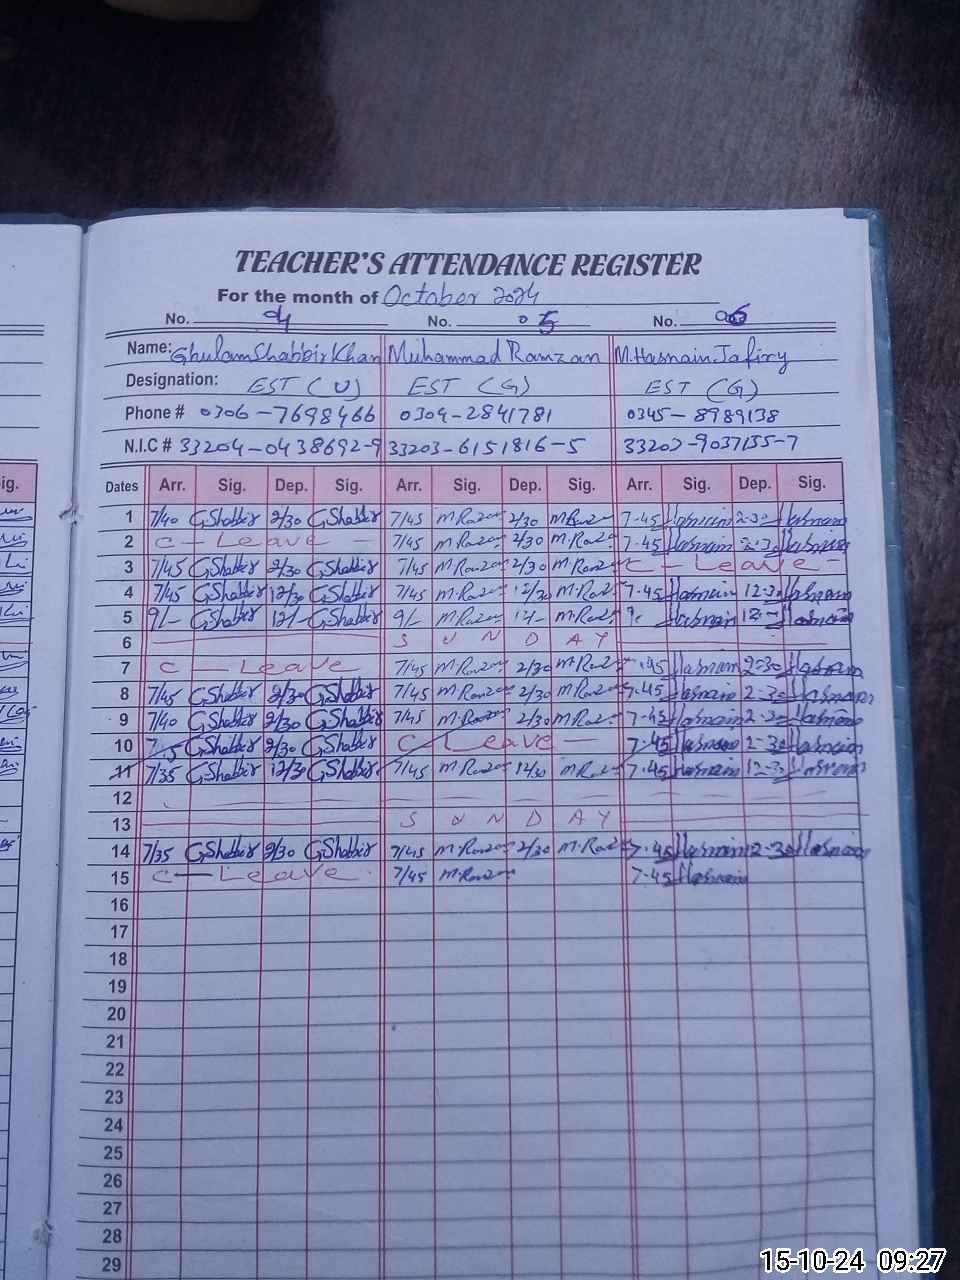 TEACHER'S ATTENDANCE REGISTER
For the month of October 2024
No. 04 No. 05 No. 06
Name: Ghulam Shabbir Khan Muhammad Ramzan M. Hasnain Jafiry
Designation: EST (U) EST (G) EST (G)
Phone # 0306-7698466 0304-2841781 0345-8989138
N.I.C # 33204-0438692-9 33203-6151816-5 33202-9037135-7
ig. Dates Arr. Sig. Dep. Sig. Arr. Sig. Dep. Sig. Arr. Sig. Dep. Sig.
1 7/40 GShabbir 2/30 GShabbir 7/45 M.Ramzan 2/30 M.Ramzan 7-45 Hasnain 2-30 Hasnain
2 C - Leave - 7/45 M.Ramzan 2/30 M.Ramzan 7-45 Hasnain 2-30 Hasnain
3 7/45 GShabbir 2/30 GShabbir 7/45 M.Ramzan 2/30 M.Ramzan C - Leave -
4 7/45 GShabbir 12/30 GShabbir 7/45 M.Ramzan 12/30 M.Ramzan 7-45 Hasnain 12-30 Hasnain
5 9/- GShabbir 12/- GShabbir 9/- M.Ramzan 12/- M.Ramzan Hasnain Hasnain
6 S U N D A Y
7 C - Leave 7/45 M.Ramzan 2/30 M.Ramzan Hasnain 2-30 Hasnain
8 7/45 GShabbir 2/30 GShabbir 7/45 M.Ramzan 2/30 M.Ramzan 7-45 Hasnain 2-30 Hasnain
9 7/40 GShabbir 2/30 GShabbir 7/45 M.Ramzan 2/30 M.Ramzan 7-45 Hasnain Hasnain
10 GShabbir 2/30 GShabbir C - Leave - 7-45 Hasnain 2-30 Hasnain
11 7/35 GShabbir 12/30 GShabbir 7/45 M.Ramzan 12/30 M.Ramzan 7-45 Hasnain 12-30 Hasnain
12
13 S U N D A Y
14 7/35 GShabbir 2/30 GShabbir 7/45 M.Ramzan 2/30 M.Ramzan 7-45 Hasnain 2-30 Hasnain
15 C - Leave 7/45 M.Ramzan 7-45 Hasnain
16
17
18
19
20
21
22
23
24
25
26
27
28
29
15-10-24 09:27